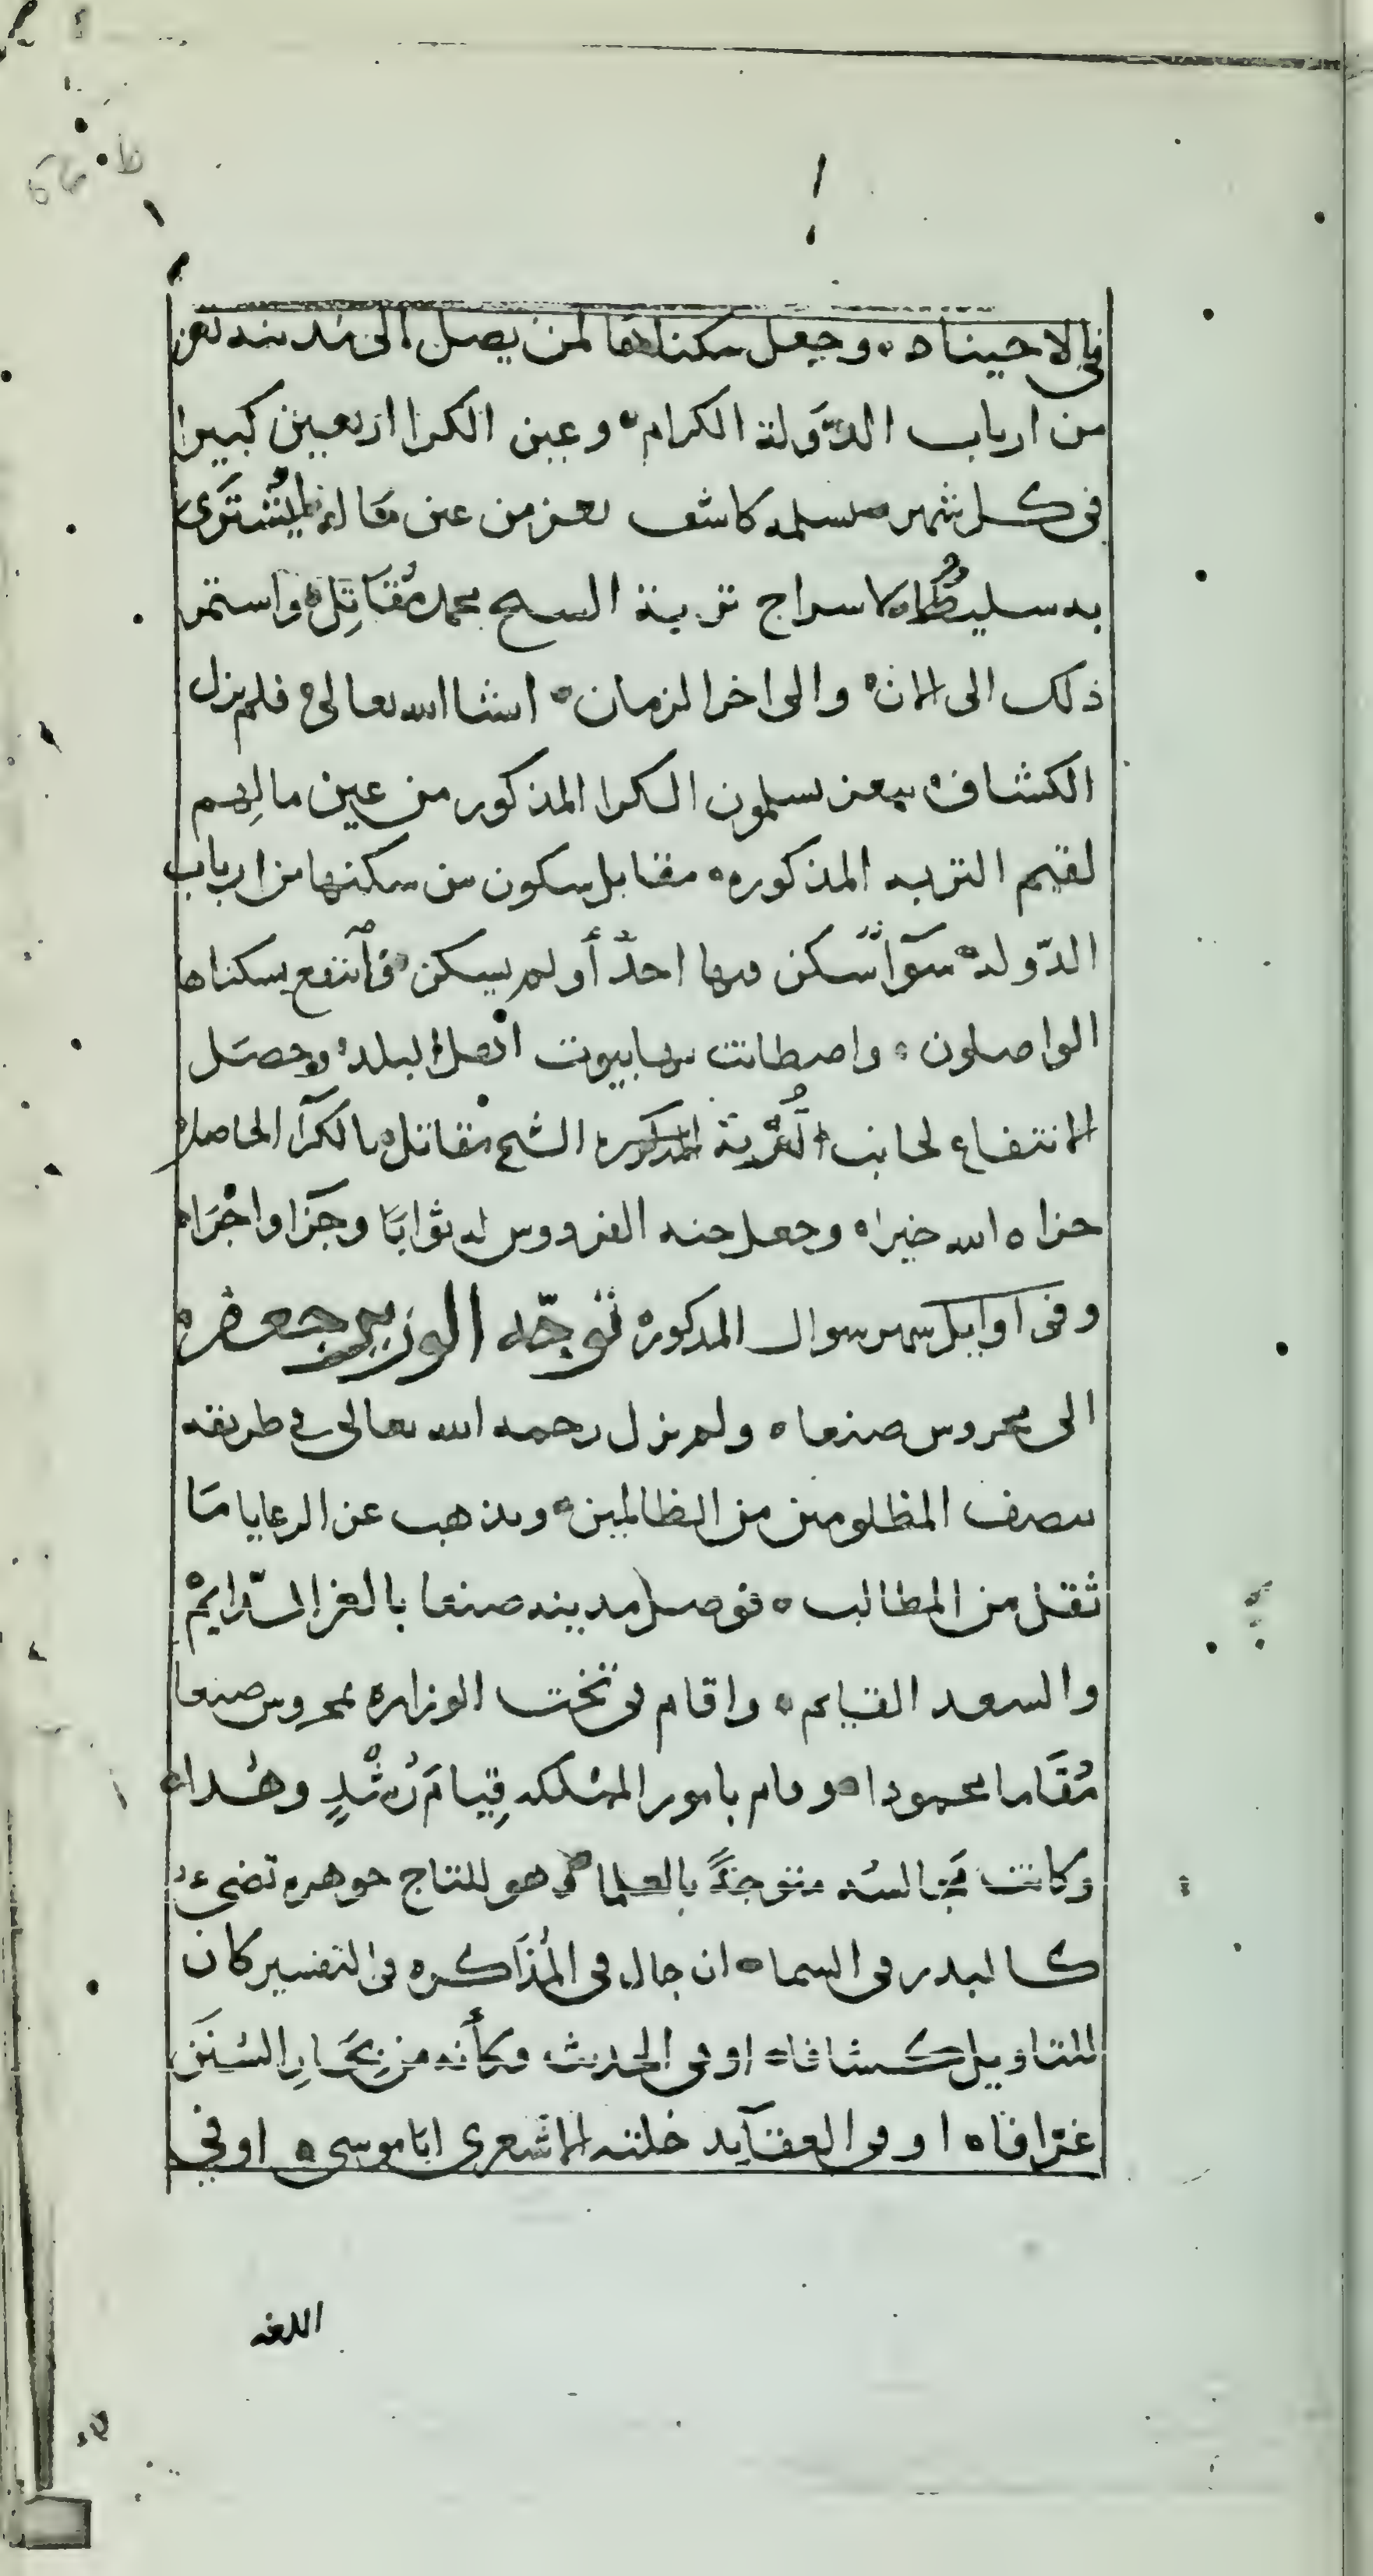 في الاحيناه وجعل سكناها لمن يصل الى مدينه تعز
من ارباب الدّولة الكرام وعين الكرا اربعين كبيرا
في كل شهر يسلمه كاشف تعز من عين ماله ليُشترى
به سليط لاسراج تربة الشيخ محمد مُقاتِل واستمر
ذلك الى الان والى اخر الزمان انشا الله تعالى فلم يزل
الكشاف بتعز يسلمون الكرا المذكور من عين مالهم
لقيم التربه المذكوره مقابل سكون من سكنها من ارباب
الدّوله سوآ سكن فيها احدٌ أو لم يسكن فانتفع بسكناها
الواصلون واصطانت بها بيوت اهل البلد وحصَل
الانتفاع لجانب التُربة المذكوره الشيخ مقاتل بالكرآ الحاصل
جزاه الله خيرا وجعل جنه الفردوس له ثوابًا وجَزا واجْرا
وفي اوايل شهر شوال المذكوره توجّه الوزير جعفر
الى محروس صنعا ولم يزل رحمه الله تعالى في طريقه
ينصف المظلومين من الظالمين ويذهب عن الرعايا مَا
ثقل من المطالب فوصل مدينه صنعا بالعز الدّايم
والسعد القايم واقام في تخت الوزاره بمحروس صنعا
مُقَاما محمودا وقام بامور المملكه قِيامَ رُشْدٍ وهُدا
وكانت مجَالسُه متوجةً بالعلما وهو للتاج جوهره تضيء
كالبدر في السما ان جال في المُذَاكره في التفسير كان
للتاويل كشافا او في الحديث فكأنه من بِحَارِ السُنَنَ
غترافا او في العقآيد خلته الاشعري ابَا موسى او في
اللغه